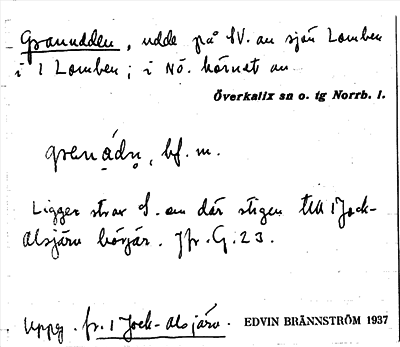 Granudden, udde på SV. av sjön Lomben
i 1 Lomben; i NÖ. hörnet av
Överkalix sn o. tg Norrb. l.
grenádn, bf. m.
Ligger strax S. om där stigen till 1 Jock-
Alsjärv börjar. Jfr. G. 23.
Uppg. fr. 1 Jock-Alsjärv. EDVIN BRÄNNSTRÖM 1937